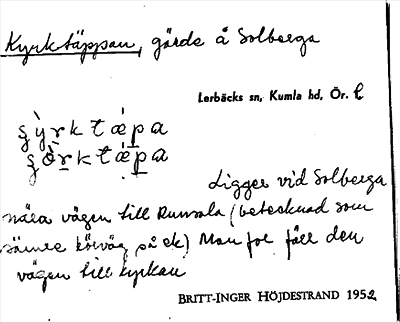 Kyrktäppan, gärde å Solberga
Lerbäcks sn, Kumla hd, Ör. l
ʂỳrktǽpa
ʂö̀rktǽpa
Ligger vid Solberga
nära vägen till Runsala (betecknad som
sämre körväg på ek) Man for förr den
vägen till kyrkan
BRITT-INGER HÖJDESTRAND 1952